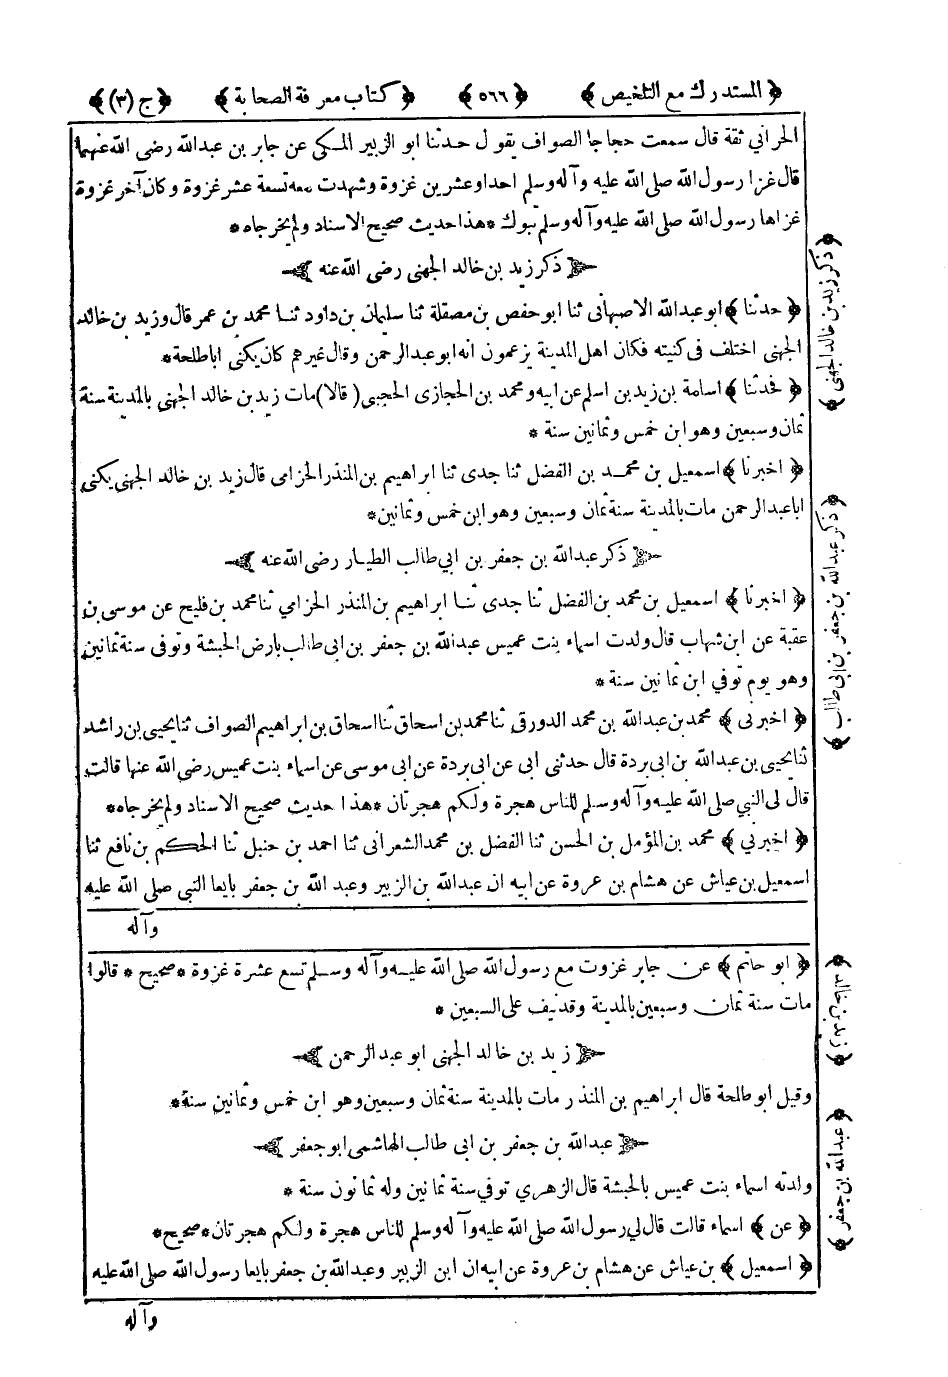 ﴿ المستدرك مع التلخيص ﴾ ﴿ ٥٦٦ ﴾ ﴿ كتاب معرفة الصحابة ﴾ ﴿ ج (٣) ﴾
الحراني ثقة قال سمعت حجاجا الصواف يقول حدثنا ابو الزبير المكى عن جابر بن عبدالله رضى الله عنهما
قال غزا رسول الله صلى الله عليه وآله وسلم احدا وعشرين غزوة وشهدت معه تسعة عشر غزوة وكان آخر غزوة
غزاها رسول الله صلى الله عليه وآله وسلم تبوك * هذا حديث صحيح الاسناد ولم يخرجاه *
ذكر زيد بن خالد الجهنى رضى الله عنه
﴿ حدثنا ﴾ ابو عبدالله الاصبهانى ثنا ابو حفص بن مصقلة ثنا سليمان بن داود ثنا محمد بن عمر قال وزيد بن خالد
الجهنى اختلف فى كنيته فكان اهل المدينة يزعمون انه ابو عبدالرحمن وقال غيرهم كان يكنى اباطلحة *
﴿ فحدثنا ﴾ اسامة بن زيد بن اسلم عن ابيه ومحمد بن الحجازى الحجبى (قالا) مات زيد بن خالد الجهنى بالمدينة سنة
ثمان وسبعين وهو ابن خمس وثمانين سنة *
﴿ اخبرنا ﴾ اسمعيل بن محمد بن الفضل ثنا جدى ثنا ابراهيم بن المنذر الحزامى قال زيد بن خالد الجهنى يكنى
اباعبدالرحمن مات بالمدينة سنة ثمان وسبعين وهو ابن خمس وثمانين *
ذكر عبدالله بن جعفر بن ابي طالب الطيار رضى الله عنه
﴿ اخبرنا ﴾ اسمعيل بن محمد بن الفضل ثنا جدى ثنا ابراهيم بن المنذر الحزامي ثنا محمد بن فليح عن موسى بن
عقبة عن ابن شهاب قال ولدت اسماء بنت عميس عبدالله بن جعفر بن ابى طالب بارض الحبشة وتوفى سنة ثمانين
وهو يوم توفي ابن ثمانين سنة *
﴿ اخبرنى ﴾ محمد بن عبدالله بن محمد الدورقى ثنا محمد بن اسحاق ثنا اسحاق بن ابراهيم الصواف ثنا يحيى بن راشد
ثنا يحيى بن عبدالله بن ابى بردة قال حدثنى ابى عن ابى بردة عن ابى موسى عن اسماء بنت عميس رضى الله عنها قالت
قال لى النبي صلى الله عليه وآله وسلم للناس هجرة ولكم هجرتان * هذا حديث صحيح الاسناد ولم يخرجاه *
﴿ اخبرني ﴾ محمد بن المؤمل بن الحسن ثنا الفضل بن محمد الشعرانى ثنا احمد بن حنبل ثنا الحكم بن نافع ثنا
اسمعيل بن عياش عن هشام بن عروة عن ابيه ان عبدالله بن الزبير وعبد الله بن جعفر بايعا النبي صلى الله عليه
وآله
﴿ ابو حاتم ﴾ عن جابر غزوت مع رسول الله صلى الله عليه وآله وسلم تسع عشرة غزوة * صحيح * قالوا
مات سنة ثمان وسبعين بالمدينة وقد نيف على السبعين *
زيد بن خالد الجهنى ابو عبدالرحمن
وقيل ابو طلحة قال ابراهيم بن المنذر مات بالمدينة سنة ثمان وسبعين وهو ابن خمس وثمانين سنة *
عبدالله بن جعفر بن ابى طالب الهاشمى ابو جعفر
ولدته اسماء بنت عميس بالحبشة قال الزهري توفي سنة ثمانين وله ثمانون سنة *
﴿ عن ﴾ اسماء قالت قال لي رسول الله صلى الله عليه وآله وسلم للناس هجرة ولكم هجرتان * صحيح *
﴿ اسمعيل ﴾ بن عياش عن هشام بن عروة عن ابيه ان ابن الزبير وعبدالله بن جعفر بايعا رسول الله صلى الله عليه
وآله
﴿ ذكر زيد بن خالد الجهنى ﴾
﴿ ذكر عبدالله بن جعفر بن ابى طالب ﴾
﴿ زيد بن خالد ﴾
﴿ عبدالله بن جعفر ﴾